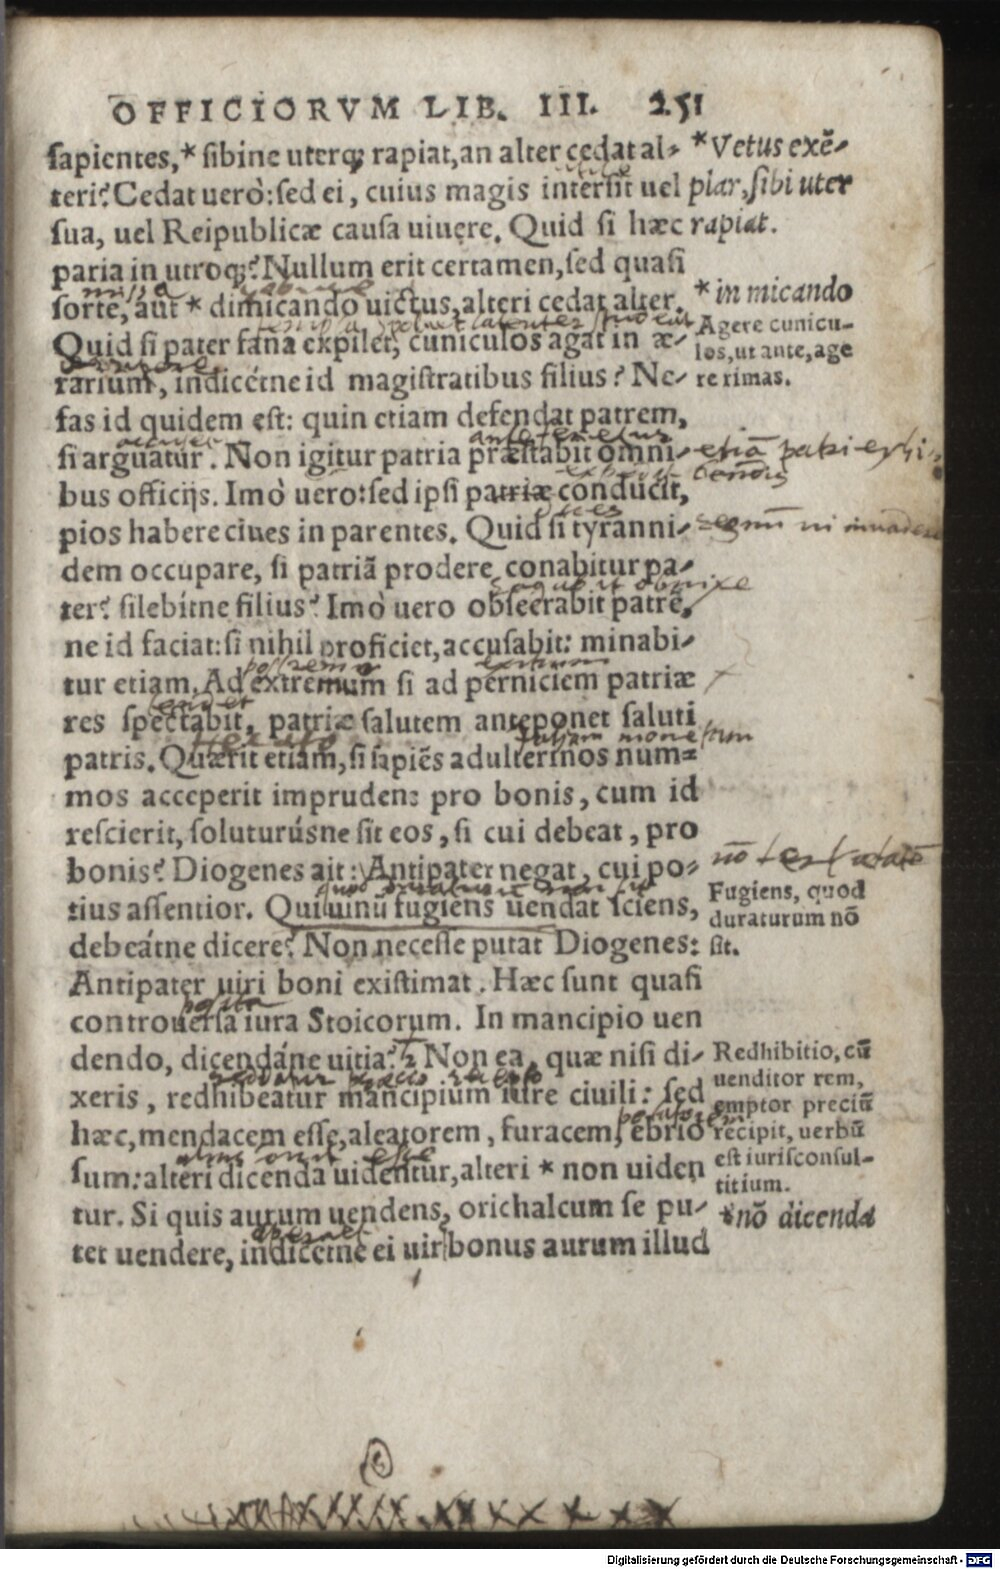 OFFICIORVM LIB. III. 251
sapientes,* sibine uterq; rapiat,an alter cedat al-
teri? Cedat uerò: sed ei, cuius magis intersit uel
sua, uel Reipublicæ causa uiuere. Quid si hæc
paria in utroq;? Nullum erit certamen, sed quasi
sorte, aut * dimicando uictus, alteri cedat alter.
Quid si pater fana expilet, cuniculos agat in æ-
rarium, indicétne id magistratibus filius? Ne-
fas id quidem est: quin etiam defendat patrem,
si arguatur. Non igitur patria præstabit omni-
bus officijs. Imò uero: sed ipsi patriæ conducit,
pios habere ciues in parentes. Quid si tyranni-
dem occupare, si patriã prodere conabitur pa-
ter? silebítne filius? Imò uero obsecrabit patrẽ,
ne id faciat: si nihil proficiet, accusabit: minabi-
tur etiam. Ad extremum si ad perniciem patriæ
res spectabit, patriæ salutem anteponet saluti
patris. Quærit etiam, si sapiẽs adulterinos num-
mos acceperit imprudens pro bonis, cum id
rescierit, soluturúsne sit eos, si cui debeat, pro
bonis? Diogenes ait: Antipater negat, cui po-
tius assentior. Qui uinũ fugiens uendat sciens,
debeátne dicere? Non necesse putat Diogenes:
Antipater uiri boni existimat. Hæc sunt quasi
controuersa iura Stoicorum. In mancipio uen
dendo, dicendáne uitia? Non ea, quæ nisi di-
xeris, redhibeatur mancipium iure ciuili: sed
hæc, mendacem esse, aleatorem, furacem, ebrio
sum: alteri dicenda uidentur, alteri * non uiden
tur. Si quis aurum uendens, orichalcum se pu-
tet uendere, indicétne ei uir bonus aurum illud
*Vetus exẽ-
plar, sibi uter
rapiat.
*in micando
Agere cunicu-
los, ut ante, age
re rimas.
Fugiens, quod
duraturum nõ
sit.
Redhibitio, cũ
uenditor rem,
emptor preciũ
recipit, uerbũ
est iurisconsul-
titium.
*nõ dicenda
Digitalisierung gefördert durch die Deutsche Forschungsgemeinschaft - DFG